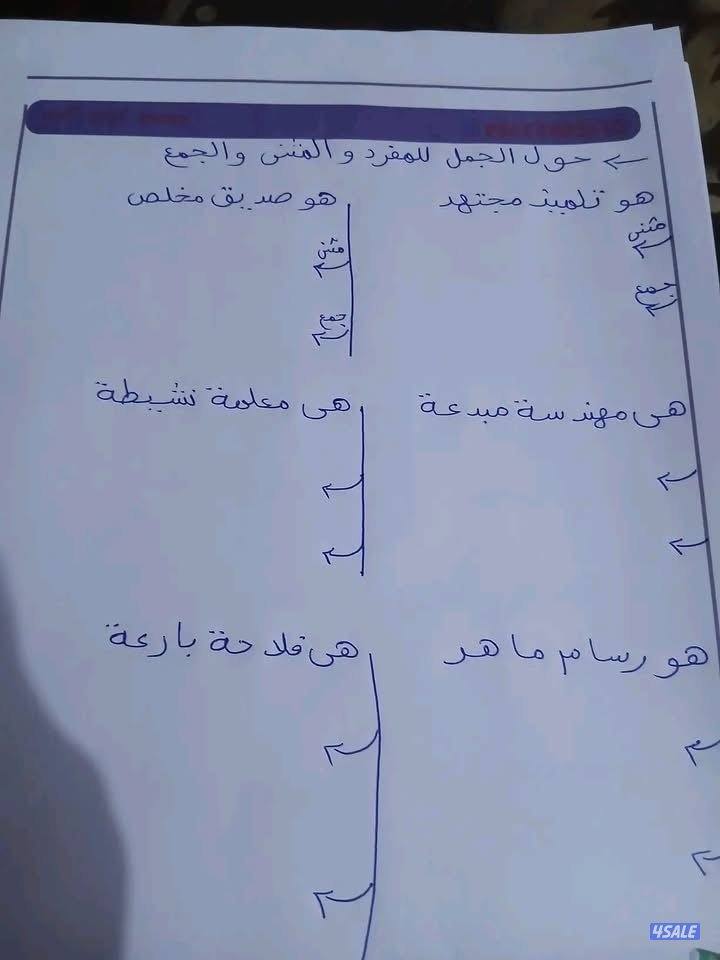 ← حول الجمل للمفرد والمثنى والجمع
هو تلميذ مجتهد
مثنى
جمع
هو صديق مخلص
مثنى
جمع
هى مهندسة مبدعة
هى معلمة نشيطة
هو رسام ماهر
هى فلاحة بارعة
4SALE